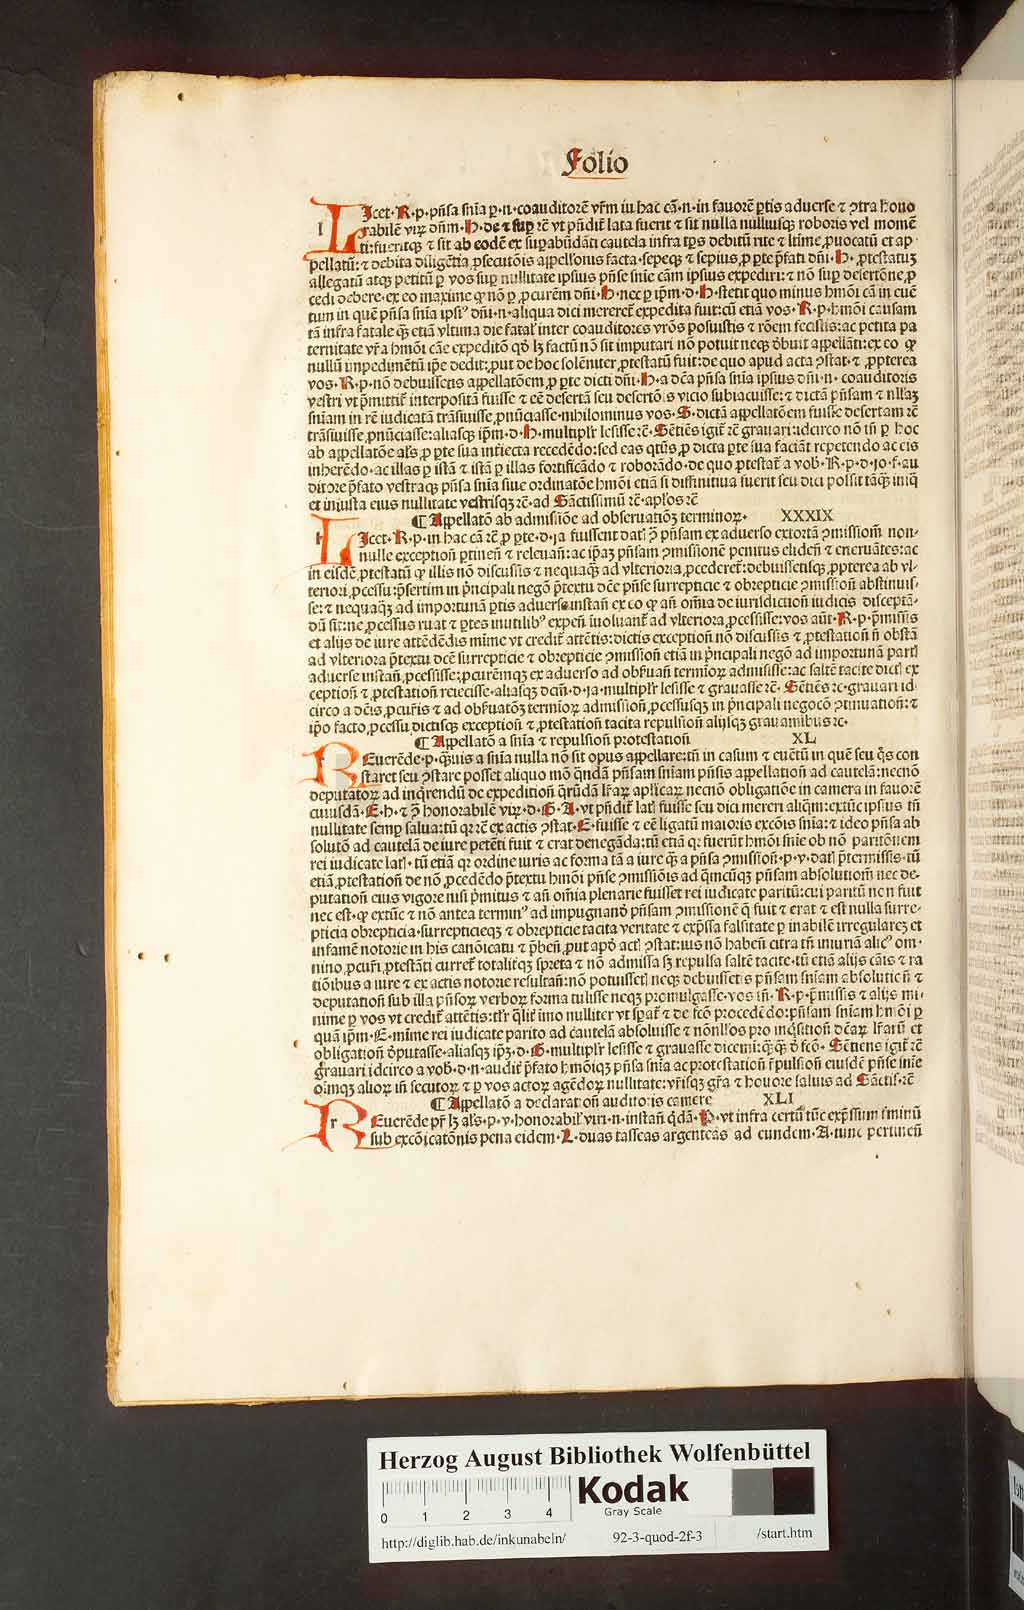 Folio
Icet·R·p·pñsa sñia ꝑ·n·coauditorē vr̄m in hac cā·n·in fauorē ꝑtis aduerse ⁊ ꝯtra hono
rabilē virꝫ dñm·H·de ⁊ suꝑ ⁊c̄ vt p̄ndit᷑ lata fuerit ⁊ sit nulla nulliusqꝫ roboris vel momē
ti:fueritqꝫ ⁊ sit ab eodē ex suꝑabūdāti cautela infra tꝑs debitū rite ⁊ ltime ꝓuocatū et ap
pellatū:⁊ debita diligētia ꝓsecutōis appell'onis facta·sepeqꝫ ⁊ sepius ꝓ ꝑte p̄fati dñi·H·ꝓtestatuꝫ
allegatū atqꝫ petitū ꝑ vos suꝑ nullitate ipsius pñse sñie cām ipsius expediri:⁊ nō suꝑ desertōne ꝓ
cedi debere·ex eo maxime ꝙ nō ꝑ ꝓcurēm dñi·H·nec ꝑ ip̄m·d·H·stetit quo minus hmōi cā in euē
tum in quē pñsa sñia ipsi⁹ dñi·n·aliqua dici mereret᷑ expedita fuit:cū etiā vos·R·p·hmōi causam
tā infra fatale qꝫ etiā vltima die fatal' inter coauditores vr̄os posuistis ⁊ rōem fecistis:ac petita pa
ternitate vr̄a hmōi cāe expeditō qd' lꝫ factū nō sit imputari nō potuit neqꝫ d'buit appellāti:ex eo ꝙ
nullū impedimētū ip̄e dedit:ꝓut de hoc solēniter ꝓtestatū fuit:de quo apud acta ꝯstat·⁊ ꝓpterea
vos·R·p·nō debuissens appellatōem ꝓ ꝑte dicti dñi·H·a dc̄a pñsa sñia ipsius dñi·n·coauditoris
vestri vt p̄mittit᷑ interpositā fuisse ⁊ eē desertā seu desertōis vicio subiacuisse:⁊ dictā pñsam ⁊ nllaꝫ
sñiam in rē iudicatā trāsiuisse ꝓnūciasse·nihilominus vos·S·dictā appellatōem fuisse desertam ⁊c̄
trāsiuisse ꝓnūciasse:aliasqꝫ ip̄m·d·H·multiplr̄ lesisse ⁊c̄·Sētiēs igit᷑ ⁊c̄ grauari:idcirco nō iñ ꝑ hoc
ab appellatōe al's ꝓ ꝑte sua iniecta recedēdo:sed eas qtūs ꝓ dicta ꝑte sua faciāt repetendo ac eis
inherēdo·ac illas ꝑ istā ⁊ istā ꝑ illas fortificādo ⁊ roborādo·de quo ꝓtestat᷑ a vob·R·p·d·Jo·f·au
ditore p̄fato vestraqꝫ pñsa sñia siue ordinatōe hmōi etiā si diffinitiua fuerit seu dici possit tāqꝫ iniq̄
et iniusta eius nullitate vestrisqꝫ ⁊c̄·ad Sāctissimū ⁊c̄·apl'os ⁊c̄
¶ Appellatō ab admissiōe ad obseruationꝫ terminoꝝ· XXXIX
Icet·R·p·in hac cā ⁊c̄ ꝓ ꝑte·d·Ja fuissent dat᷑ ꝯ pñsam ex aduerso extortā ꝯmissionꝫ non-
nulle exception̄ ptinen̄ ⁊ releuan̄:ac ip̄aꝫ pñsam ꝯmissionē penitus eliden̄ ⁊ eneruātes:ac
in eisdē ꝓtestatū ꝙ illis nō discussis ⁊ nequaqꝫ ad vlteriora ꝓcederet᷑:debuissetisqꝫ ꝓpterea ab vl-
teriori ꝓcessu:p̄sertim in p̄ncipali negō p̄textu dc̄e pñse surrepticie ⁊ obrepticie ꝯmission̄ abstinuis-
se:⁊ nequaqꝫ ad importunā ꝑtis aduerse instan̄ ex eo ꝙ an̄ om̄ia de iurisdiction̄ iudicis disceptā-
dū sit:ne ꝓcessus ruat ⁊ ꝑtes inutilib⁹ expen̄ inuoluant᷑ ad vlteriora ꝓcessisse:vos aūt·R·p·p̄missis
et alijs de iure attēdēdis mīme vt credit᷑ attētis:dictis exception̄ nō discussis ⁊ ꝓtestation̄ n̄ obstā
ad vlteriora p̄textu dc̄e surrepticie ⁊ obrepticie ꝯmission̄ etiā in p̄ncipali negō ad importunā parti
aduerse instan̄ ꝓcessisse:ꝓcurēmqꝫ ex aduerso ad obseruan̄ termioꝝ admisisse:ac saltē tacite dict᷑ ex
ception̄ ⁊ ꝓtestation̄ reiecisse·aliasqꝫ dcm̄·d·Ja·multiplr̄ lesisse ⁊ grauasse ⁊c̄·Sētiēs ⁊c·grauari id
circo a dc̄is ꝓcur̄is ⁊ ad obseruatōꝫ termioꝝ admission̄ ꝓcessusqꝫ in p̄ncipali negocō ꝯtinuation̄:⁊
ip̄o facto ꝓcessu dictisqꝫ exception̄ ⁊ ꝓtestation̄ tacita repulsion̄ alijsqꝫ grauamibus ⁊c·
¶ Appellatō a sñia ⁊ repulsion̄ protestation̄ XL
Euerēde·p·qꝫuis a sñia nulla nō sit opus appellare:tn̄ in casum ⁊ euētū in quē seu q̄s con
staret seu ꝯstare posset aliquo mō q̄ndā pñsam sñiam pñsis appellation̄ ad cautelā:necnō
deputatoꝝ ad inqrendū de expedition̄ qrūdā lr̄aꝝ apl'icaꝝ necnō obligatiōe in camera in fauorē
cuiusdā·E·h·⁊ ꝯ honorabilē virꝫ·d·G·A·vt p̄ndit᷑ lat᷑ fuisse seu dici mereri aliqm:extūc ipsius tn̄
nullitate semꝑ salua:tū qꝛ ⁊c̄ ex actis ꝯstat·E·fuisse ⁊ eē ligatū maioris excōis sñia:⁊ ideo pñsa ab
solutō ad cautelā de iure petēti fuit ⁊ erat denegāda:tū etiā qꝛ fuerūt hmōi sñie ob nō paritōnem
rei iudicate lat᷑·tū etiā qꝛ ordine iuris ac forma tā a iure qꝫ a pñsa ꝯmission̄·p·v·dat᷑ p̄termissis·tū
etiā ꝓtestation̄ de nō ꝓcedēdo p̄textu hmōi pñse ꝯmissiōis ad qꝫcūqꝫ pñsam absolution̄ nec de-
putation̄ eius vigore nisi p̄mitus ⁊ an̄ om̄ia plenarie fuisset rei iudicate paritū:cui paritū non fuit
nec est·ꝙ extūc ⁊ nō antea termin⁹ ad impugnand' pñsam ꝯmissionē q̄ fuit ⁊ erat ⁊ est nulla surre-
pticia obrepticia·surrepticieqꝫ ⁊ obrepticie tacita veritate ⁊ exp̄ssa falsitate ꝑ inabilē irregulareꝫ et
infamē notorie in his canōicatu ⁊ p̄ben̄ ꝓut apd' act᷑ ꝯstat:ius nō haben̄ citra tn̄ iniuriā alic⁹ om-
nino ꝓcuri ꝓtestāti curret᷑ totalit᷑qꝫ spreta ⁊ nō admissa sꝫ repulsa saltē tacite·tū etiā alijs cāis ⁊ ra
tiōibus a iure ⁊ ex actis notorie resultan̄:nō potuisset᷑ neqꝫ debuissetis pñsam sñiam absolution̄ ⁊
deputation̄ sub illa pñsoꝝ verboꝝ forma tulisse neqꝫ promulgasse·vos in̄·R·p·p̄missis ⁊ alijs mi-
nime ꝑ vos vt credit᷑ attētis:tlr̄ qlit᷑ imo nulliter vt sꝑat᷑ ⁊ de fc̄o procedēdo:pñsam sñiam hmōi ꝑ
quā ip̄m·E·mīme rei iudicate parito ad cautelā absoluisse ⁊ nōnll'os pro inqsition̄ dc̄aꝝ lr̄arū et
obligation̄ d'putasse·aliasqꝫ ipꝫ·d·G·multiplr̄ lesisse ⁊ grauasse dicemi:qꝫ qꝫ d' fc̄o·Sētiens igit᷑ ⁊c̄
grauari idcirco a vob·d·n·audit᷑ p̄fato hmōiqꝫ pñsa sñia ac protestation̄ r̄pulsion̄ eiusdē pñse sñie
oīmqꝫ alioꝝ in̄ secutoꝝ ⁊ ꝑ vos actoꝝ agēdoꝝ nullitate:vr̄isqꝫ gr̄a ⁊ honore saluis ad Sāctis·⁊c̄
¶ Appellatō a declaration̄ auditoris camere XLI
Euerēde pr̄ lꝫ al's·p·v·honorabil' viri·n·instan̄ q̄dā·P·vt infra certū tūc exp̄ssum t'minū
sub excōicatōnis pena eidem·L·duas tasseas argenteas ad eundem·A·tunc pertinen̄
Herzog August Bibliothek Wolfenbüttel
0 1 2 3 4
Kodak
Gray Scale
http://diglib.hab.de/inkunabeln/ 92-3-quod-2f-3 /start.htm